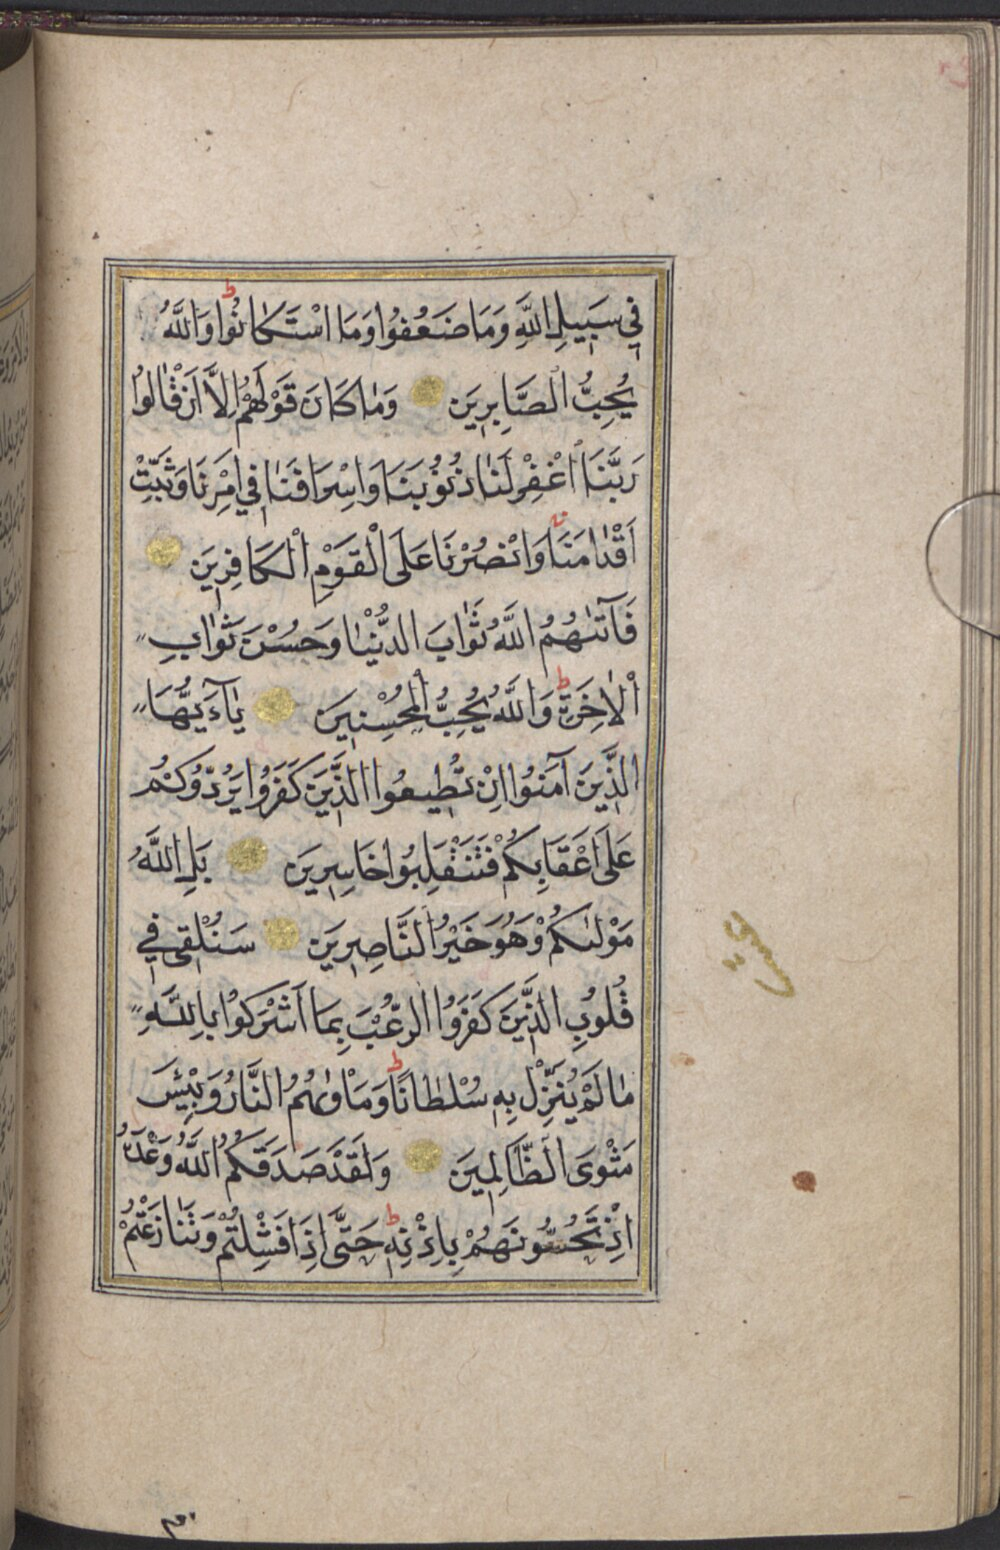 فِي سَبِيلِ اللَّهِ وَمَا ضَعُفُوا وَمَا اسْتَكَانُوا ط وَاللَّهُ
يُحِبُّ الصَّابِرِينَ وَمَا كَانَ قَوْلَهُمْ إِلَّا أَنْ قَالُوا
رَبَّنَا اغْفِرْ لَنَا ذُنُوبَنَا وَإِسْرَافَنَا فِي أَمْرِنَا وَثَبِّتْ
أَقْدَامَنَا وَانْصُرْنَا عَلَى الْقَوْمِ الْكَافِرِينَ
فَآتٰىهُمُ اللَّهُ ثَوَابَ الدُّنْيَا وَحُسْنَ ثَوَابِ
الْاٰخِرَةِ ط وَاللَّهُ يُحِبُّ الْمُحْسِنِينَ يَاءَيُّهَا
الَّذِينَ آمَنُوا إِنْ تُطِيعُوا الَّذِينَ كَفَرُوا يَرُدُّوكُمْ
عَلَى أَعْقَابِكُمْ فَتَنْقَلِبُوا خَاسِرِينَ بَلِ اللَّهُ
مَوْلٰىكُمْ وَهُوَ خَيْرُ النَّاصِرِينَ سَنُلْقِي فِي
قُلُوبِ الَّذِينَ كَفَرُوا الرُّعْبَ بِمَا أَشْرَكُوا بِاللَّهِ
مَا لَمْ يُنَزِّلْ بِهِ سُلْطَانًا ط وَمَأْوٰىهُمُ النَّارُ وَبِئْسَ
مَثْوَى الظَّالِمِينَ وَلَقَدْ صَدَقَكُمُ اللَّهُ وَعْدَهُ
إِذْ تَحُسُّونَهُمْ بِإِذْنِهِ ط حَتَّى إِذَا فَشِلْتُمْ وَتَنَازَعْتُمْ